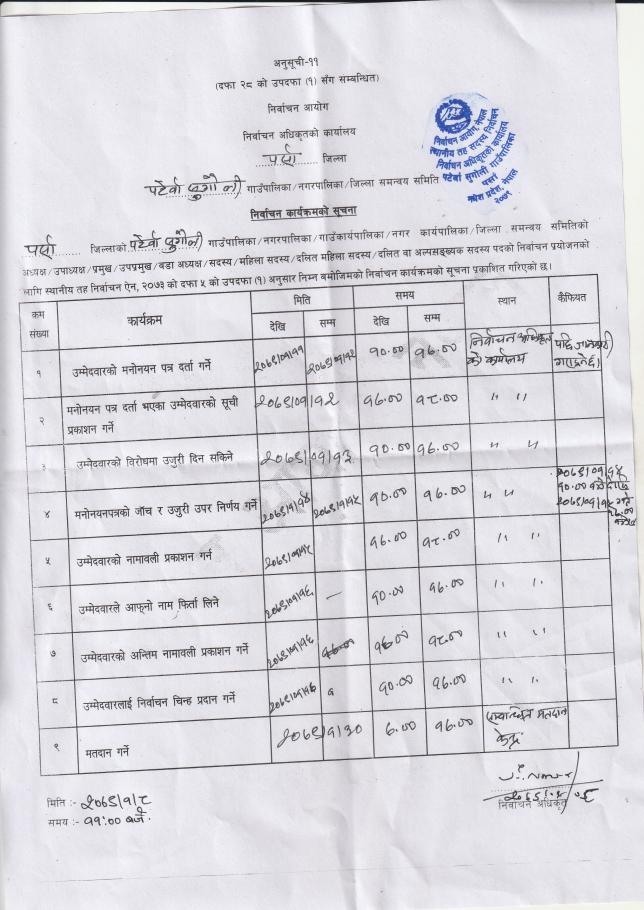 अनुसूची-११
(दफा २८ को उपदफा (१) सँग सम्बन्धित)
निर्वाचन आयोग
निर्वाचन अधिकृतको कार्यालय
पर्सा जिल्ला
पटेर्वा सुगौली गाउँपालिका/नगरपालिका/जिल्ला समन्वय समिति
निर्वाचन आयोग, नेपाल
स्थानीय तह सदस्य निर्वाचन
निर्वाचन अधिकृतको कार्यालय
पटेर्वा सुगौली गाउँपालिका
पर्सा
मधेश प्रदेश, नेपाल
२०७९
निर्वाचन कार्यक्रमको सूचना
पर्सा जिल्लाको पटेर्वा सुगौली गाउँपालिका/नगरपालिका/गाउँकार्यपालिका/नगर कार्यपालिका/जिल्ला समन्वय समितिको
अध्यक्ष/उपाध्यक्ष/प्रमुख/उपप्रमुख/वडा अध्यक्ष/सदस्य/महिला सदस्य/दलित महिला सदस्य/दलित वा अल्पसङ्ख्यक सदस्य पदको निर्वाचन प्रयोजनको
लागि स्थानीय तह निर्वाचन ऐन, २०७३ को दफा ५ को उपदफा (१) अनुसार निम्न बमोजिमको निर्वाचन कार्यक्रमको सूचना प्रकाशित गरिएको छ।
क्रम संख्या कार्यक्रम मिति समय स्थान कैफियत
देखि सम्म देखि सम्म
१ उम्मेदवारको मनोनयन पत्र दर्ता गर्ने २०७९/०१/११ २०७९/०१/१२ १०.०० १७.०० निर्वाचन अधिकृत को कार्यालय
२ मनोनयन पत्र दर्ता भएका उम्मेदवारको सूची प्रकाशन गर्ने २०७९/०१/१२ १७.०० १८.०० " "
३ उम्मेदवारको विरोधमा उजुरी दिन सकिने २०७९/०१/१३ १०.०० १७.०० " "
४ मनोनयनपत्रको जाँच र उजुरी उपर निर्णय गर्ने २०७९/०१/१४ २०७९/०१/१५ १०.०० १७.०० " "
५ उम्मेदवारको नामावली प्रकाशन गर्न २०७९/०१/१५ १७.०० १८.०० " "
६ उम्मेदवारले आफ्नो नाम फिर्ता लिने २०७९/०१/१६ — १०.०० १७.०० " "
७ उम्मेदवारको अन्तिम नामावली प्रकाशन गर्ने २०७९/०१/१६ १७.०० १८.०० " "
८ उम्मेदवारलाई निर्वाचन चिन्ह प्रदान गर्ने २०७९/०१/१७ १०.०० १७.०० " "
९ मतदान गर्ने २०७९/१/३० ७.०० १७.०० सम्बन्धित मतदान केन्द्र
मिति :- २०७९/१/८
समय :- ११:०० बजे
निर्वाचन अधिकृत